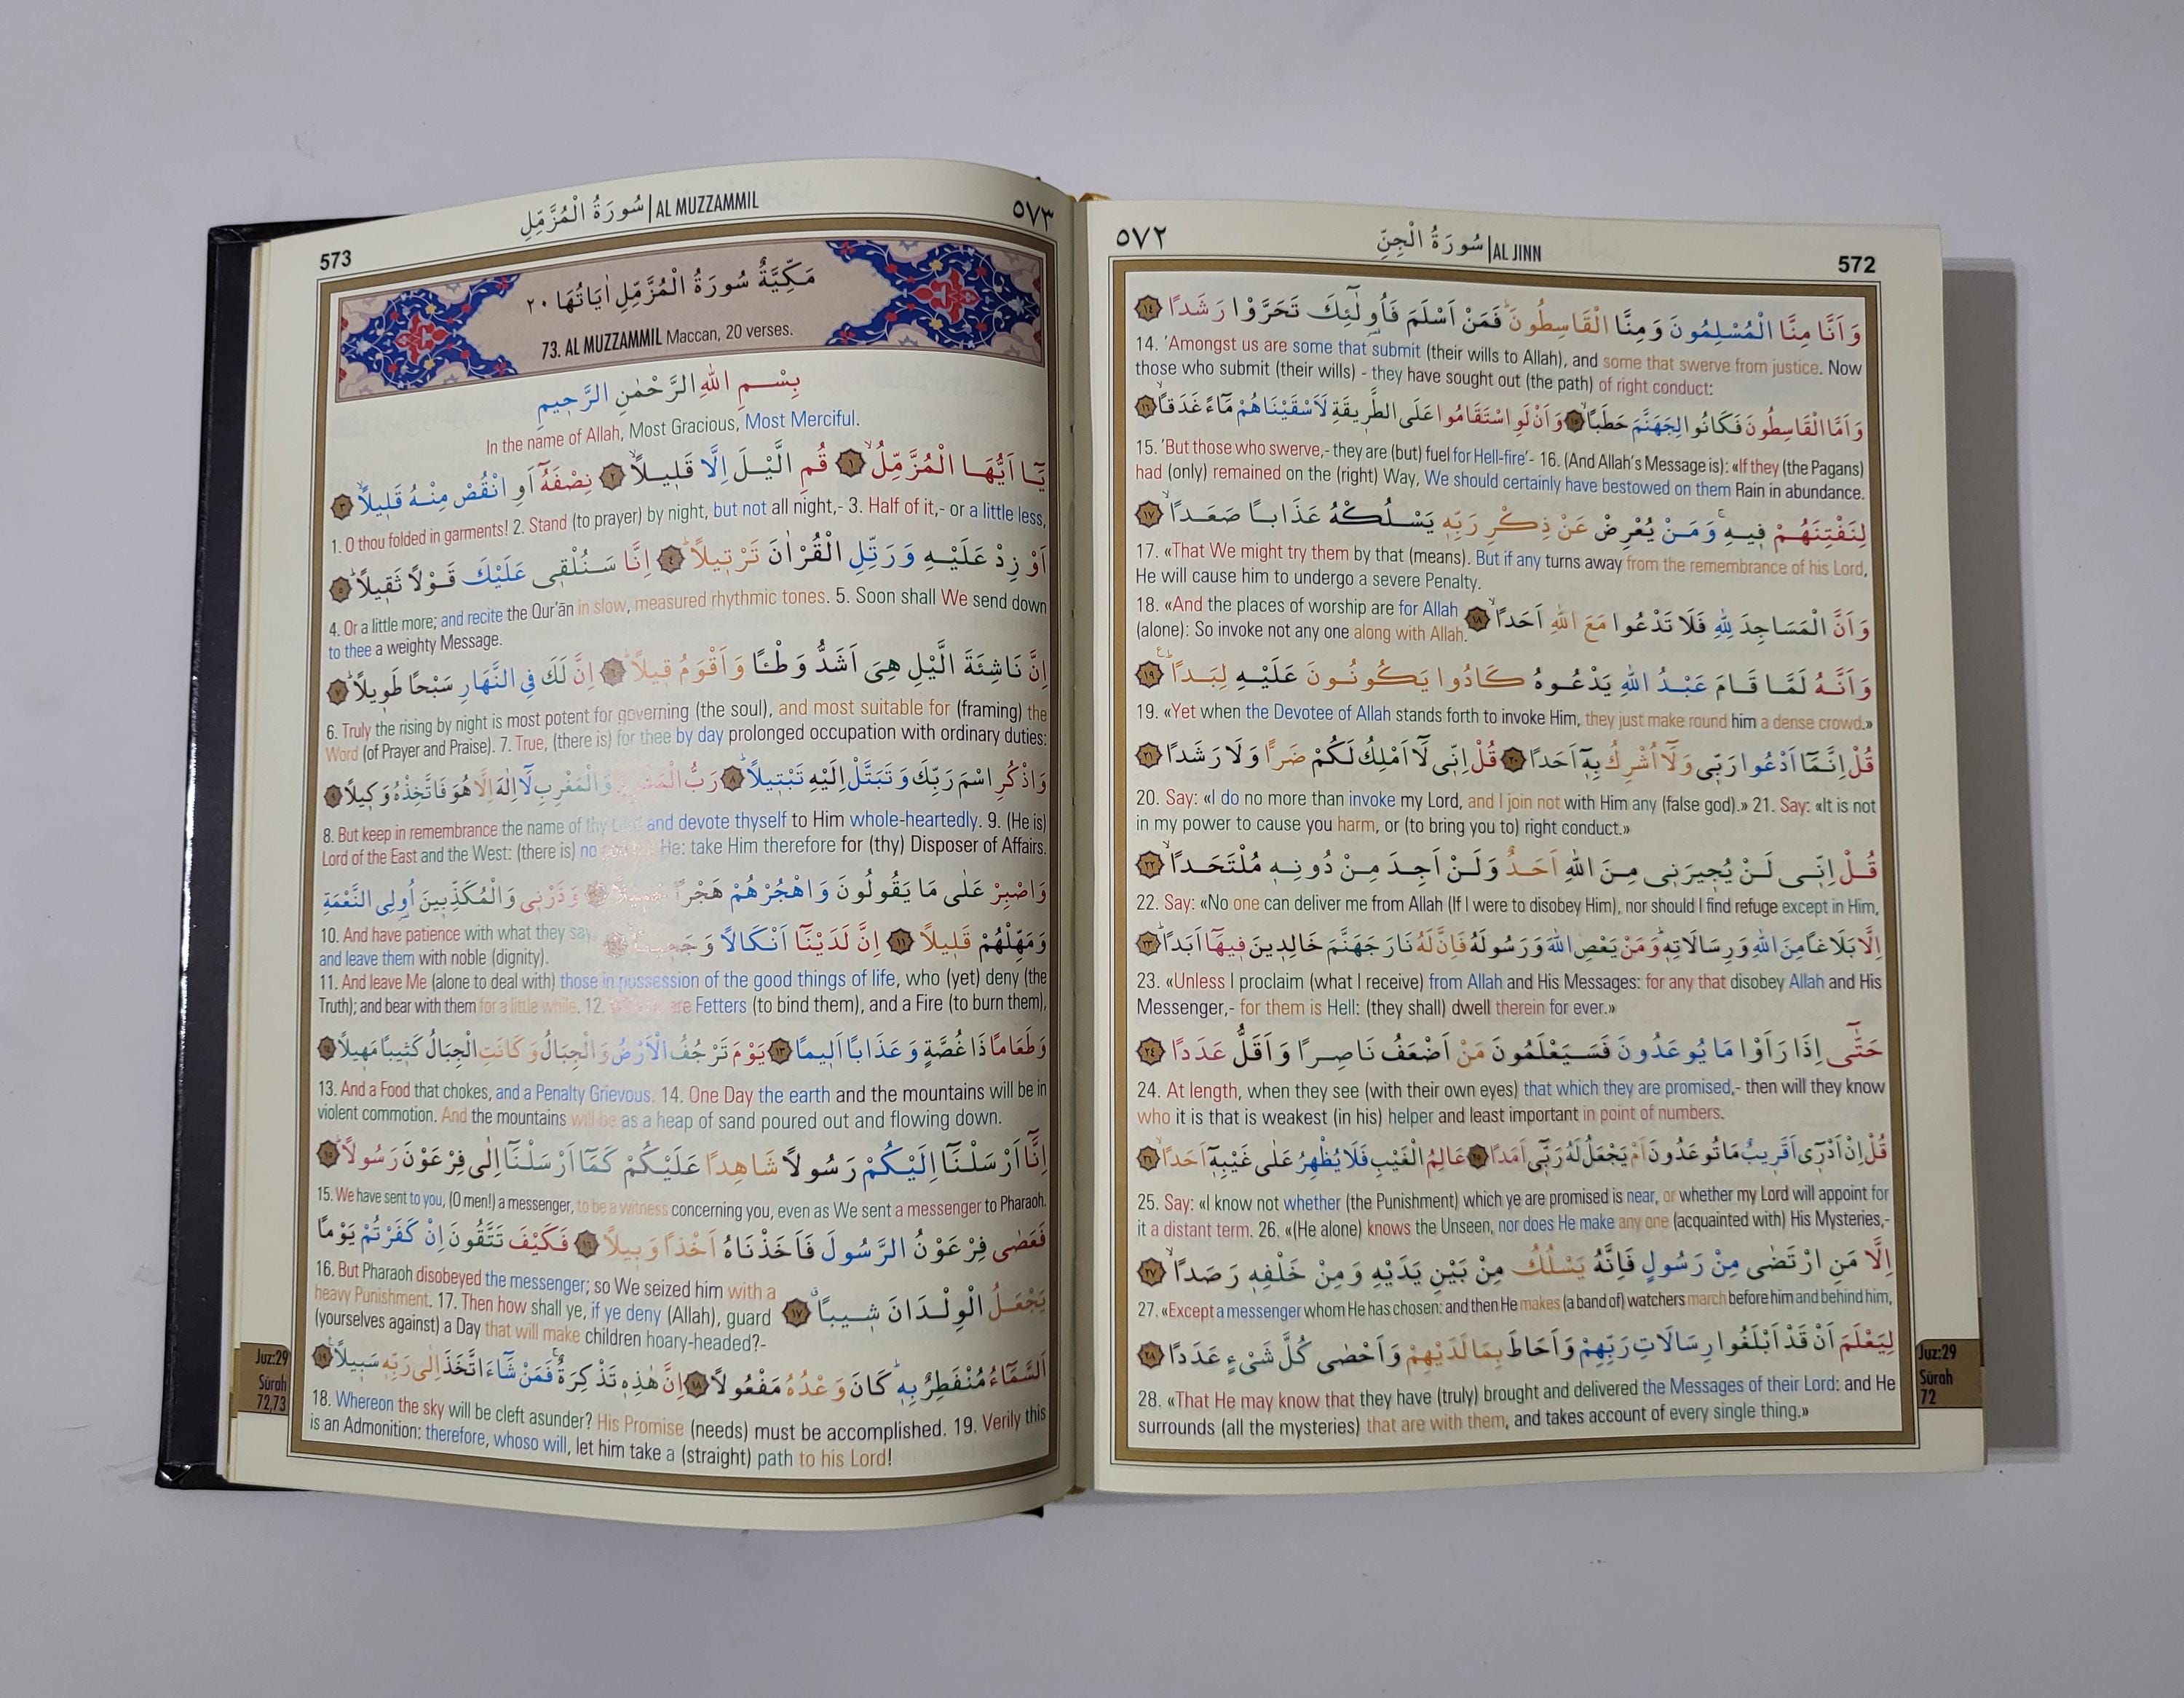 ٥٧٢ سُورَةُ الْجِنِّ | AL JINN 572
وَاَنَّا مِنَّا الْمُسْلِمُونَ وَمِنَّا الْقَاسِطُونَۜ فَمَنْ اَسْلَمَ فَاُو۬لٰٓئِكَ تَحَرَّوْا رَشَدًا ﴿١٤﴾
14. 'Amongst us are some that submit (their wills to Allah), and some that swerve from justice. Now
those who submit (their wills) - they have sought out (the path) of right conduct:
وَاَمَّا الْقَاسِطُونَ فَكَانُوا لِجَهَنَّمَ حَطَبًاۙ ﴿١٥﴾ وَاَنْ لَوِ اسْتَقَامُوا عَلَى الطَّرٖيقَةِ لَاَسْقَيْنَاهُمْ مَٓاءً غَدَقًاۙ ﴿١٦﴾
15. 'But those who swerve,- they are (but) fuel for Hell-fire'- 16. (And Allah's Message is): «If they (the Pagans)
had (only) remained on the (right) Way, We should certainly have bestowed on them Rain in abundance.
لِنَفْتِنَهُمْ فٖيهِۚ وَمَنْ يُعْرِضْ عَنْ ذِكْرِ رَبِّهٖ يَسْلُكْهُ عَذَابًا صَعَدًاۙ ﴿١٧﴾
17. «That We might try them by that (means). But if any turns away from the remembrance of his Lord,
He will cause him to undergo a severe Penalty.
وَاَنَّ الْمَسَاجِدَ لِلّٰهِ فَلَا تَدْعُوا مَعَ اللّٰهِ اَحَدًاۙ ﴿١٨﴾
18. «And the places of worship are for Allah
(alone): So invoke not any one along with Allah.
وَاَنَّهُ لَمَّا قَامَ عَبْدُ اللّٰهِ يَدْعُوهُ كَادُوا يَكُونُونَ عَلَيْهِ لِبَدًا ﴿١٩﴾
19. «Yet when the Devotee of Allah stands forth to invoke Him, they just make round him a dense crowd.»
قُلْ اِنَّمَٓا اَدْعُوا رَبّٖي وَلَٓا اُشْرِكُ بِهٖٓ اَحَدًا ﴿٢٠﴾ قُلْ اِنّٖي لَٓا اَمْلِكُ لَكُمْ ضَرًّا وَلَا رَشَدًا ﴿٢١﴾
20. Say: «I do no more than invoke my Lord, and I join not with Him any (false god).» 21. Say: «It is not
in my power to cause you harm, or (to bring you to) right conduct.»
قُلْ اِنّٖي لَنْ يُجٖيرَنٖي مِنَ اللّٰهِ اَحَدٌ وَلَنْ اَجِدَ مِنْ دُونِهٖ مُلْتَحَدًاۙ ﴿٢٢﴾
22. Say: «No one can deliver me from Allah (If I were to disobey Him), nor should I find refuge except in Him,
اِلَّا بَلَاغًا مِنَ اللّٰهِ وَرِسَالَاتِهٖۜ وَمَنْ يَعْصِ اللّٰهَ وَرَسُولَهُ فَاِنَّ لَهُ نَارَ جَهَنَّمَ خَالِدٖينَ فٖيهَٓا اَبَدًاۜ ﴿٢٣﴾
23. «Unless I proclaim (what I receive) from Allah and His Messages: for any that disobey Allah and His
Messenger,- for them is Hell: (they shall) dwell therein for ever.»
حَتّٰٓى اِذَا رَاَوْا مَا يُوعَدُونَ فَسَيَعْلَمُونَ مَنْ اَضْعَفُ نَاصِرًا وَاَقَلُّ عَدَدًا ﴿٢٤﴾
24. At length, when they see (with their own eyes) that which they are promised,- then will they know
who it is that is weakest (in his) helper and least important in point of numbers.
قُلْ اِنْ اَدْرٖٓي اَقَرٖيبٌ مَا تُوعَدُونَ اَمْ يَجْعَلُ لَهُ رَبّٖٓي اَمَدًا ﴿٢٥﴾ عَالِمُ الْغَيْبِ فَلَا يُظْهِرُ عَلٰى غَيْبِهٖٓ اَحَدًاۙ ﴿٢٦﴾
25. Say: «I know not whether (the Punishment) which ye are promised is near, or whether my Lord will appoint for
it a distant term. 26. «(He alone) knows the Unseen, nor does He make any one (acquainted with) His Mysteries,-
اِلَّا مَنِ ارْتَضٰى مِنْ رَسُولٍ فَاِنَّهُ يَسْلُكُ مِنْ بَيْنِ يَدَيْهِ وَمِنْ خَلْفِهٖ رَصَدًاۙ ﴿٢٧﴾
27. «Except a messenger whom He has chosen: and then He makes (a band of) watchers march before him and behind him,
لِيَعْلَمَ اَنْ قَدْ اَبْلَغُوا رِسَالَاتِ رَبِّهِمْ وَاَحَاطَ بِمَا لَدَيْهِمْ وَاَحْصٰى كُلَّ شَيْءٍ عَدَدًا ﴿٢٨﴾
28. «That He may know that they have (truly) brought and delivered the Messages of their Lord: and He
surrounds (all the mysteries) that are with them, and takes account of every single thing.»
Juz:29
Sūrah
72
573 سُورَةُ الْمُزَّمِّلِ | AL MUZZAMMIL ٥٧٣
مَكِّيَّةٌ سُورَةُ الْمُزَّمِّلِ اٰيَاتُهَا ٢٠
73. AL MUZZAMMIL Maccan, 20 verses.
بِسْمِ اللّٰهِ الرَّحْمٰنِ الرَّحٖيمِ
In the name of Allah, Most Gracious, Most Merciful.
يَٓا اَيُّهَا الْمُزَّمِّلُۙ ﴿١﴾ قُمِ الَّيْلَ اِلَّا قَلٖيلًاۙ ﴿٢﴾ نِصْفَهُٓ اَوِ انْقُصْ مِنْهُ قَلٖيلًاۙ ﴿٣﴾
1. O thou folded in garments! 2. Stand (to prayer) by night, but not all night,- 3. Half of it,- or a little less,
اَوْ زِدْ عَلَيْهِ وَرَتِّلِ الْقُرْاٰنَ تَرْتٖيلًاۜ ﴿٤﴾ اِنَّا سَنُلْقٖي عَلَيْكَ قَوْلًا ثَقٖيلًاۜ ﴿٥﴾
4. Or a little more; and recite the Qur'ān in slow, measured rhythmic tones. 5. Soon shall We send down
to thee a weighty Message.
اِنَّ نَاشِئَةَ الَّيْلِ هِيَ اَشَدُّ وَطْـًٔا وَاَقْوَمُ قٖيلًاۜ ﴿٦﴾ اِنَّ لَكَ فِي النَّهَارِ سَبْحًا طَوٖيلًاۜ ﴿٧﴾
6. Truly the rising by night is most potent for governing (the soul), and most suitable for (framing) the
Word (of Prayer and Praise). 7. True, (there is) for thee by day prolonged occupation with ordinary duties:
وَاذْكُرِ اسْمَ رَبِّكَ وَتَبَتَّلْ اِلَيْهِ تَبْتٖيلًاۜ ﴿٨﴾ رَبُّ الْمَشْرِقِ وَالْمَغْرِبِ لَٓا اِلٰهَ اِلَّا هُوَ فَاتَّخِذْهُ وَكٖيلًا ﴿٩﴾
8. But keep in remembrance the name of thy and devote thyself to Him whole-heartedly. 9. (He is)
Lord of the East and the West: (there is) no He: take Him therefore for (thy) Disposer of Affairs.
وَاصْبِرْ عَلٰى مَا يَقُولُونَ وَاهْجُرْهُمْ هَجْرًا وَذَرْنٖي وَالْمُكَذِّبٖينَ اُو۬لِي النَّعْمَةِ
وَمَهِّلْهُمْ قَلٖيلًا ﴿١١﴾ اِنَّ لَدَيْنَٓا اَنْكَالًا وَجَحٖيمًاۙ
10. And have patience with what they say,
and leave them with noble (dignity).
11. And leave Me (alone to deal with) those in possession of the good things of life, who (yet) deny (the
Truth); and bear with them for a little while. 12. are Fetters (to bind them), and a Fire (to burn them),
وَطَعَامًا ذَا غُصَّةٍ وَعَذَابًا اَلٖيمًا ﴿١٣﴾ يَوْمَ تَرْجُفُ الْاَرْضُ وَالْجِبَالُ وَكَانَتِ الْجِبَالُ كَثٖيبًا مَهٖيلًا ﴿١٤﴾
13. And a Food that chokes, and a Penalty Grievous. 14. One Day the earth and the mountains will be in
violent commotion. And the mountains will be as a heap of sand poured out and flowing down.
اِنَّٓا اَرْسَلْنَٓا اِلَيْكُمْ رَسُولًا شَاهِدًا عَلَيْكُمْ كَمَٓا اَرْسَلْنَٓا اِلٰى فِرْعَوْنَ رَسُولًاۜ ﴿١٥﴾
15. We have sent to you, (O men!) a messenger, to be a witness concerning you, even as We sent a messenger to Pharaoh.
فَعَصٰى فِرْعَوْنُ الرَّسُولَ فَاَخَذْنَاهُ اَخْذًا وَبٖيلًا ﴿١٦﴾ فَكَيْفَ تَتَّقُونَ اِنْ كَفَرْتُمْ يَوْمًا
يَجْعَلُ الْوِلْدَانَ شٖيبًاۗ ﴿١٧﴾
16. But Pharaoh disobeyed the messenger; so We seized him with a
heavy Punishment. 17. Then how shall ye, if ye deny (Allah), guard
(yourselves against) a Day that will make children hoary-headed?-
اَلسَّمَٓاءُ مُنْفَطِرٌ بِهٖۜ كَانَ وَعْدُهُ مَفْعُولًا ﴿١٨﴾ اِنَّ هٰذِهٖ تَذْكِرَةٌۚ فَمَنْ شَٓاءَ اتَّخَذَ اِلٰى رَبِّهٖ سَبٖيلًا ﴿١٩﴾
18. Whereon the sky will be cleft asunder? His Promise (needs) must be accomplished. 19. Verily this
is an Admonition: therefore, whoso will, let him take a (straight) path to his Lord!
Juz:29
Sūrah
72,73